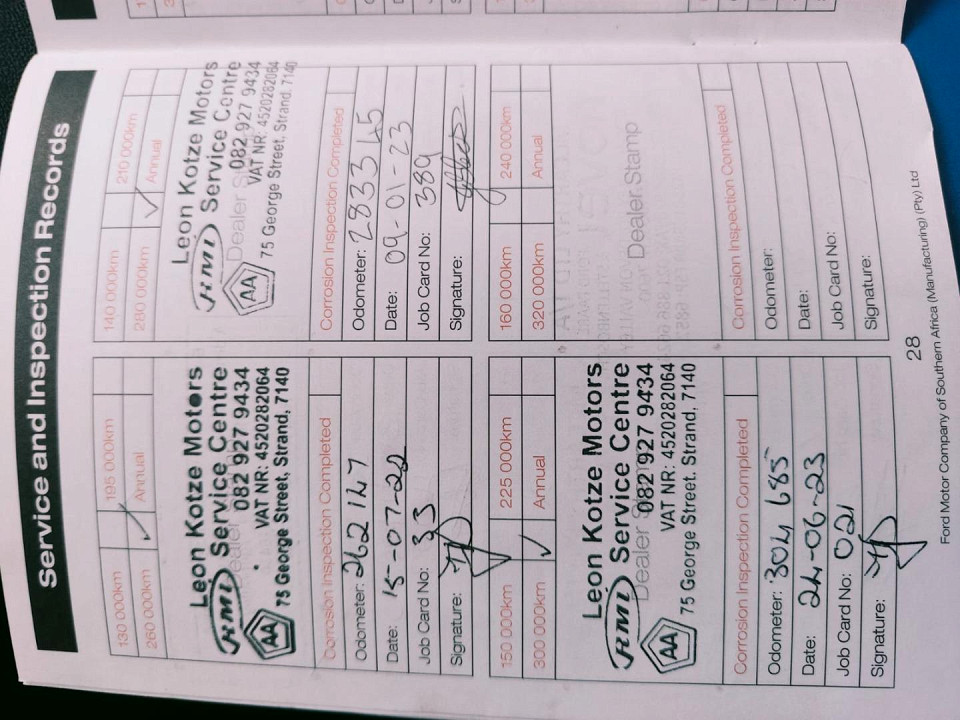 Service and Inspection Records
130 000km 195 000km
260 000km ✓ Annual
Leon Kotze Motors
RMI Service Centre
Dealer Stamp
082 927 9434
AA VAT NR: 4520282064
75 George Street, Strand, 7140
Corrosion Inspection Completed
Odometer: 262 147
Date: 15-07-22
Job Card No: 33
Signature:
140 000km 210 000km
280 000km ✓ Annual
Leon Kotze Motors
RMI Service Centre
Dealer Stamp
082 927 9434
AA VAT NR: 4520282064
75 George Street, Strand, 7140
Corrosion Inspection Completed
Odometer: 283345
Date: 09-01-23
Job Card No: 389
Signature:
150 000km 225 000km
300 000km ✓ Annual
Leon Kotze Motors
RMI Service Centre
Dealer Stamp
082 927 9434
AA VAT NR: 4520282064
75 George Street, Strand, 7140
Corrosion Inspection Completed
Odometer: 304 685
Date: 24-06-23
Job Card No: 021
Signature:
160 000km 240 000km
320 000km Annual
Dealer Stamp
Corrosion Inspection Completed
Odometer:
Date:
Job Card No:
Signature:
28
Ford Motor Company of Southern Africa (Manufacturing) (Pty) Ltd